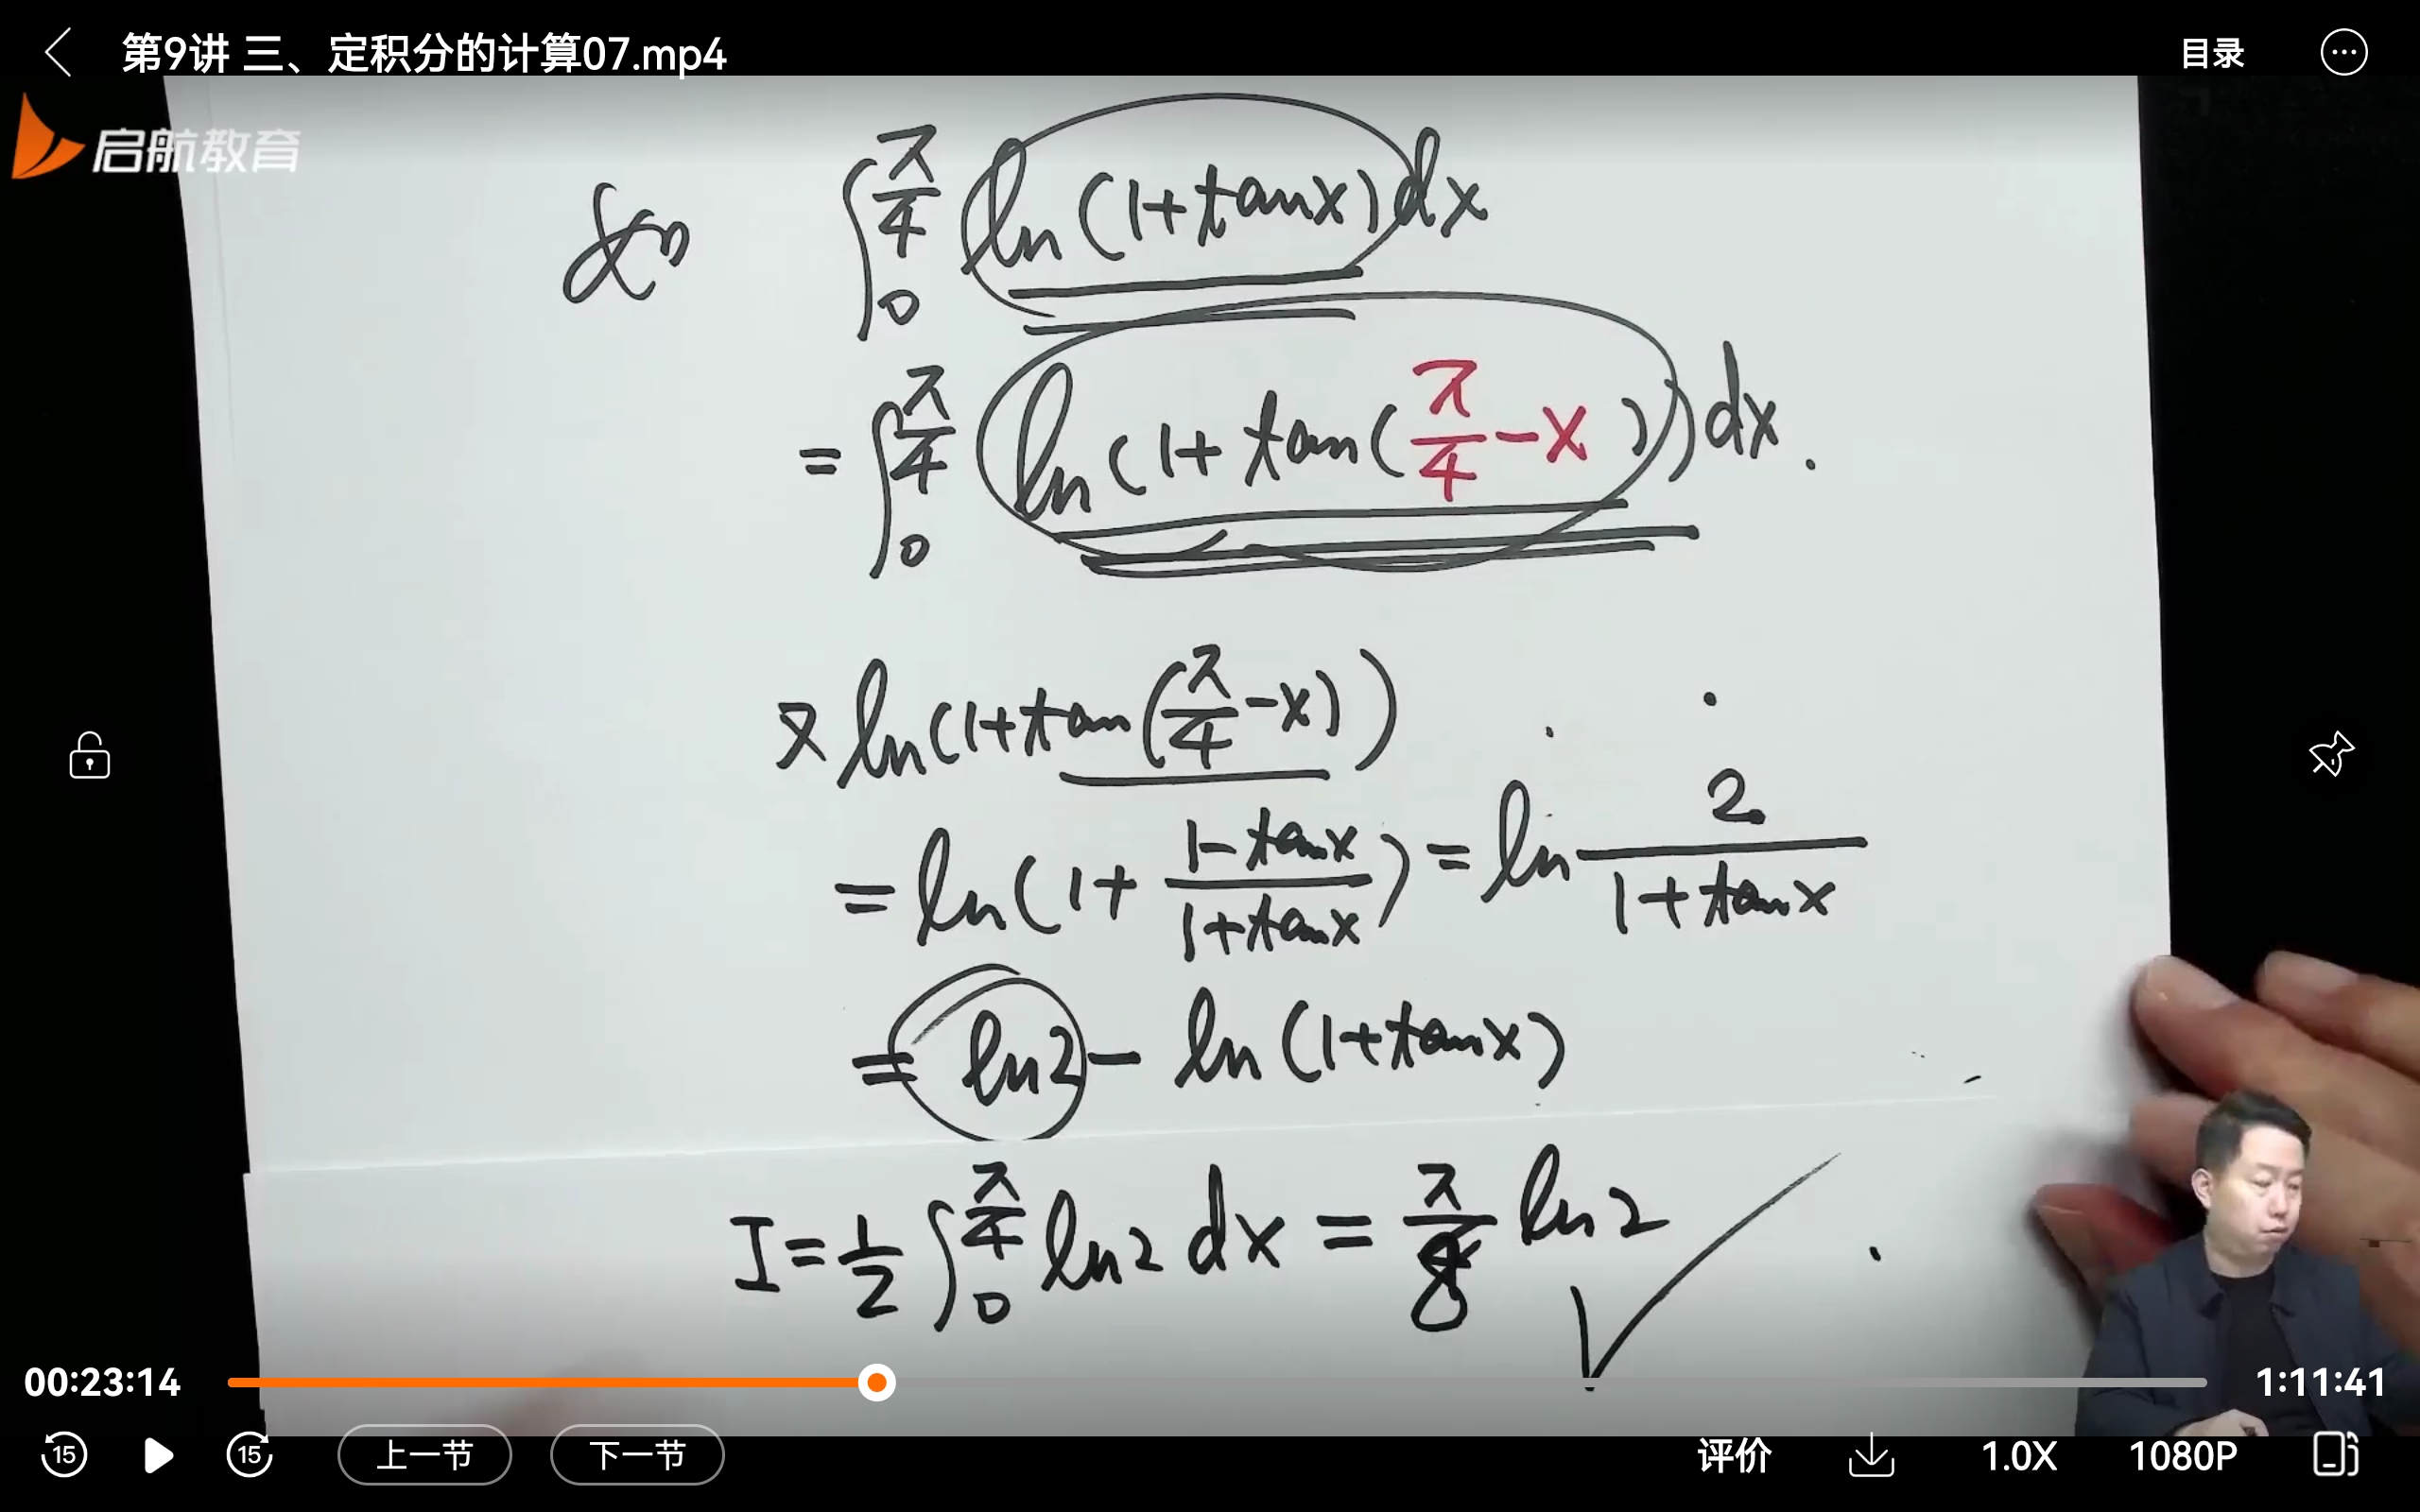 第9讲 三、定积分的计算07.mp4
目录
启航教育
如 ∫₀^{π/4} ln(1+tanx)dx
= ∫₀^{π/4} ln(1+tan(π/4-x))dx.
又 ln(1+tan(π/4-x))
= ln(1+ (1-tanx)/(1+tanx)) = ln 2/(1+tanx)
= ln2 - ln(1+tanx)
I = 1/2 ∫₀^{π/4} ln2 dx = π/8 ln2
00:23:14
1:11:41
15
15
上一节
下一节
评价
1.0X
1080P